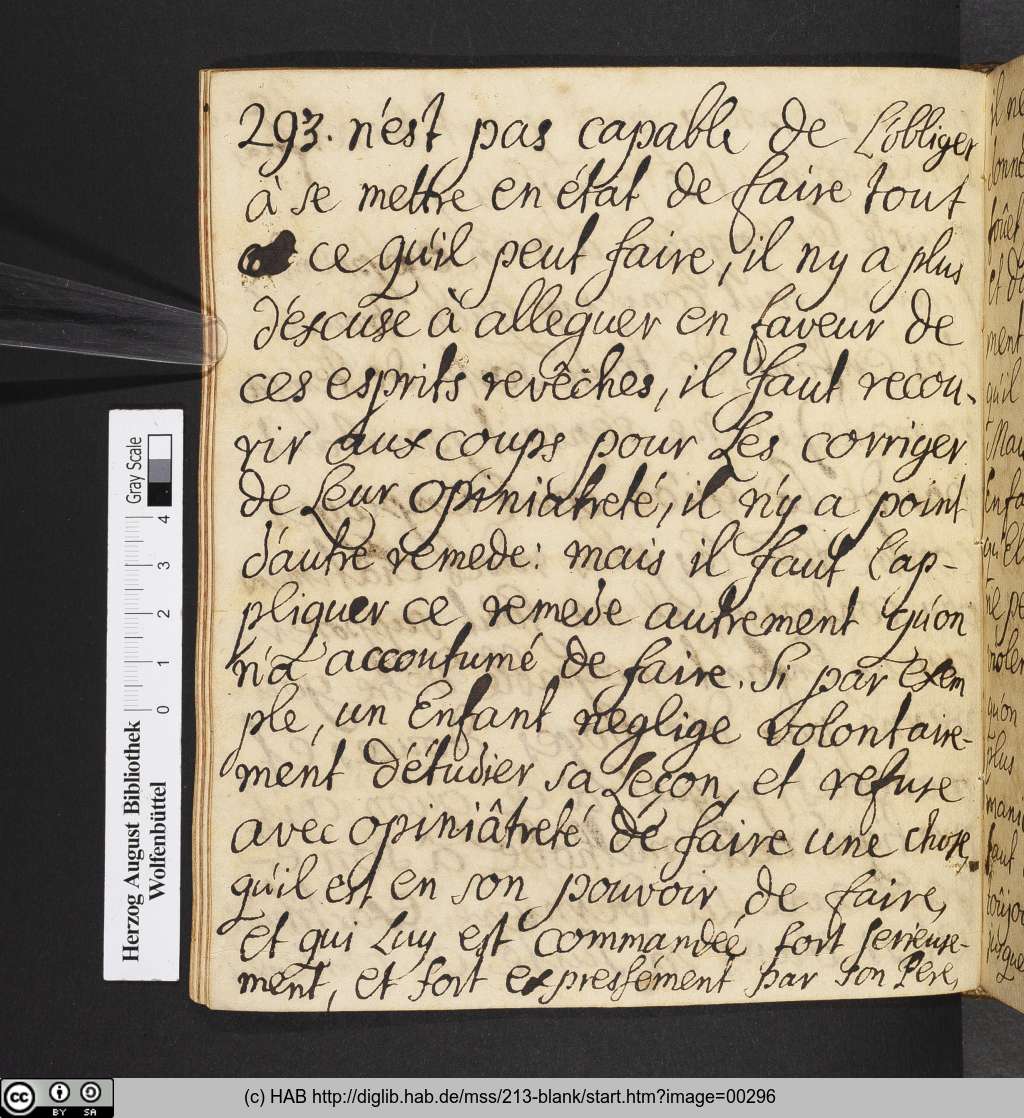 293. n'est pas capable de L'obliger
à se mettre en état de faire tout
ce qu'il peut faire, il ny a plus
d'éxcuse à alleguer en faveur de
ces esprits revêches, il faut recou-
rir aux coups pour Les corriger
de Leur opiniatreté, il n'y a point
d'autre remede: mais il faut l'ap-
pliquer ce remede autrement qu'on
n'a accoutumé de faire. Si par exem
ple, un Enfant neglige volontaire-
ment d'étudier sa Leçon, et refuse
avec opiniâtreté de faire une chose,
qu'il est en son pouvoir de faire,
et qui Luy est commandeé fort serieuse-
ment, et fort expressément par son Pere,
il ne
et
ment
qu'il
qu'on
plus
Herzog August Bibliothek
Wolfenbüttel
Gray Scale
0 1 2 3 4
cc BY SA
(c) HAB http://diglib.hab.de/mss/213-blank/start.htm?image=00296